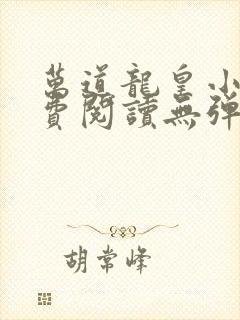 萬道龍皇小
費閱讀無彈
胡常峰